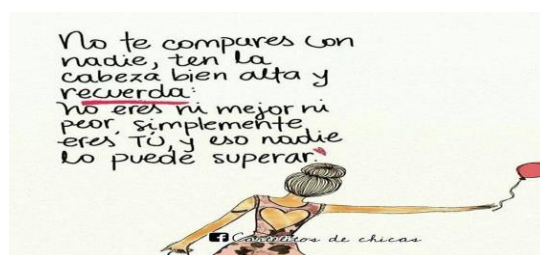 No te compares con
nadie, ten la
cabeza bien alta y
recuerda:
no eres ni mejor ni
peor, simplemente
eres TÚ, y eso nadie
lo puede superar.
Cartelitos de chicas